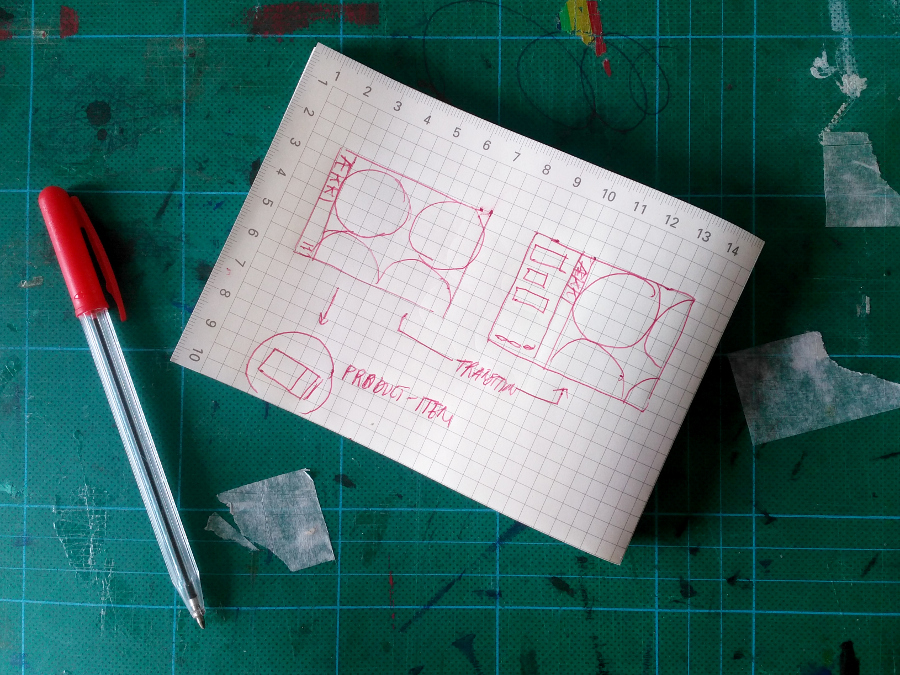 1 2 3 4 5 6 7 8 9 10 11 12 13 14
1
2
3
4
5
6
7
8
9
10
ÆKKI
ÆKKI
TRANSITION
PRODUCT-ITEM